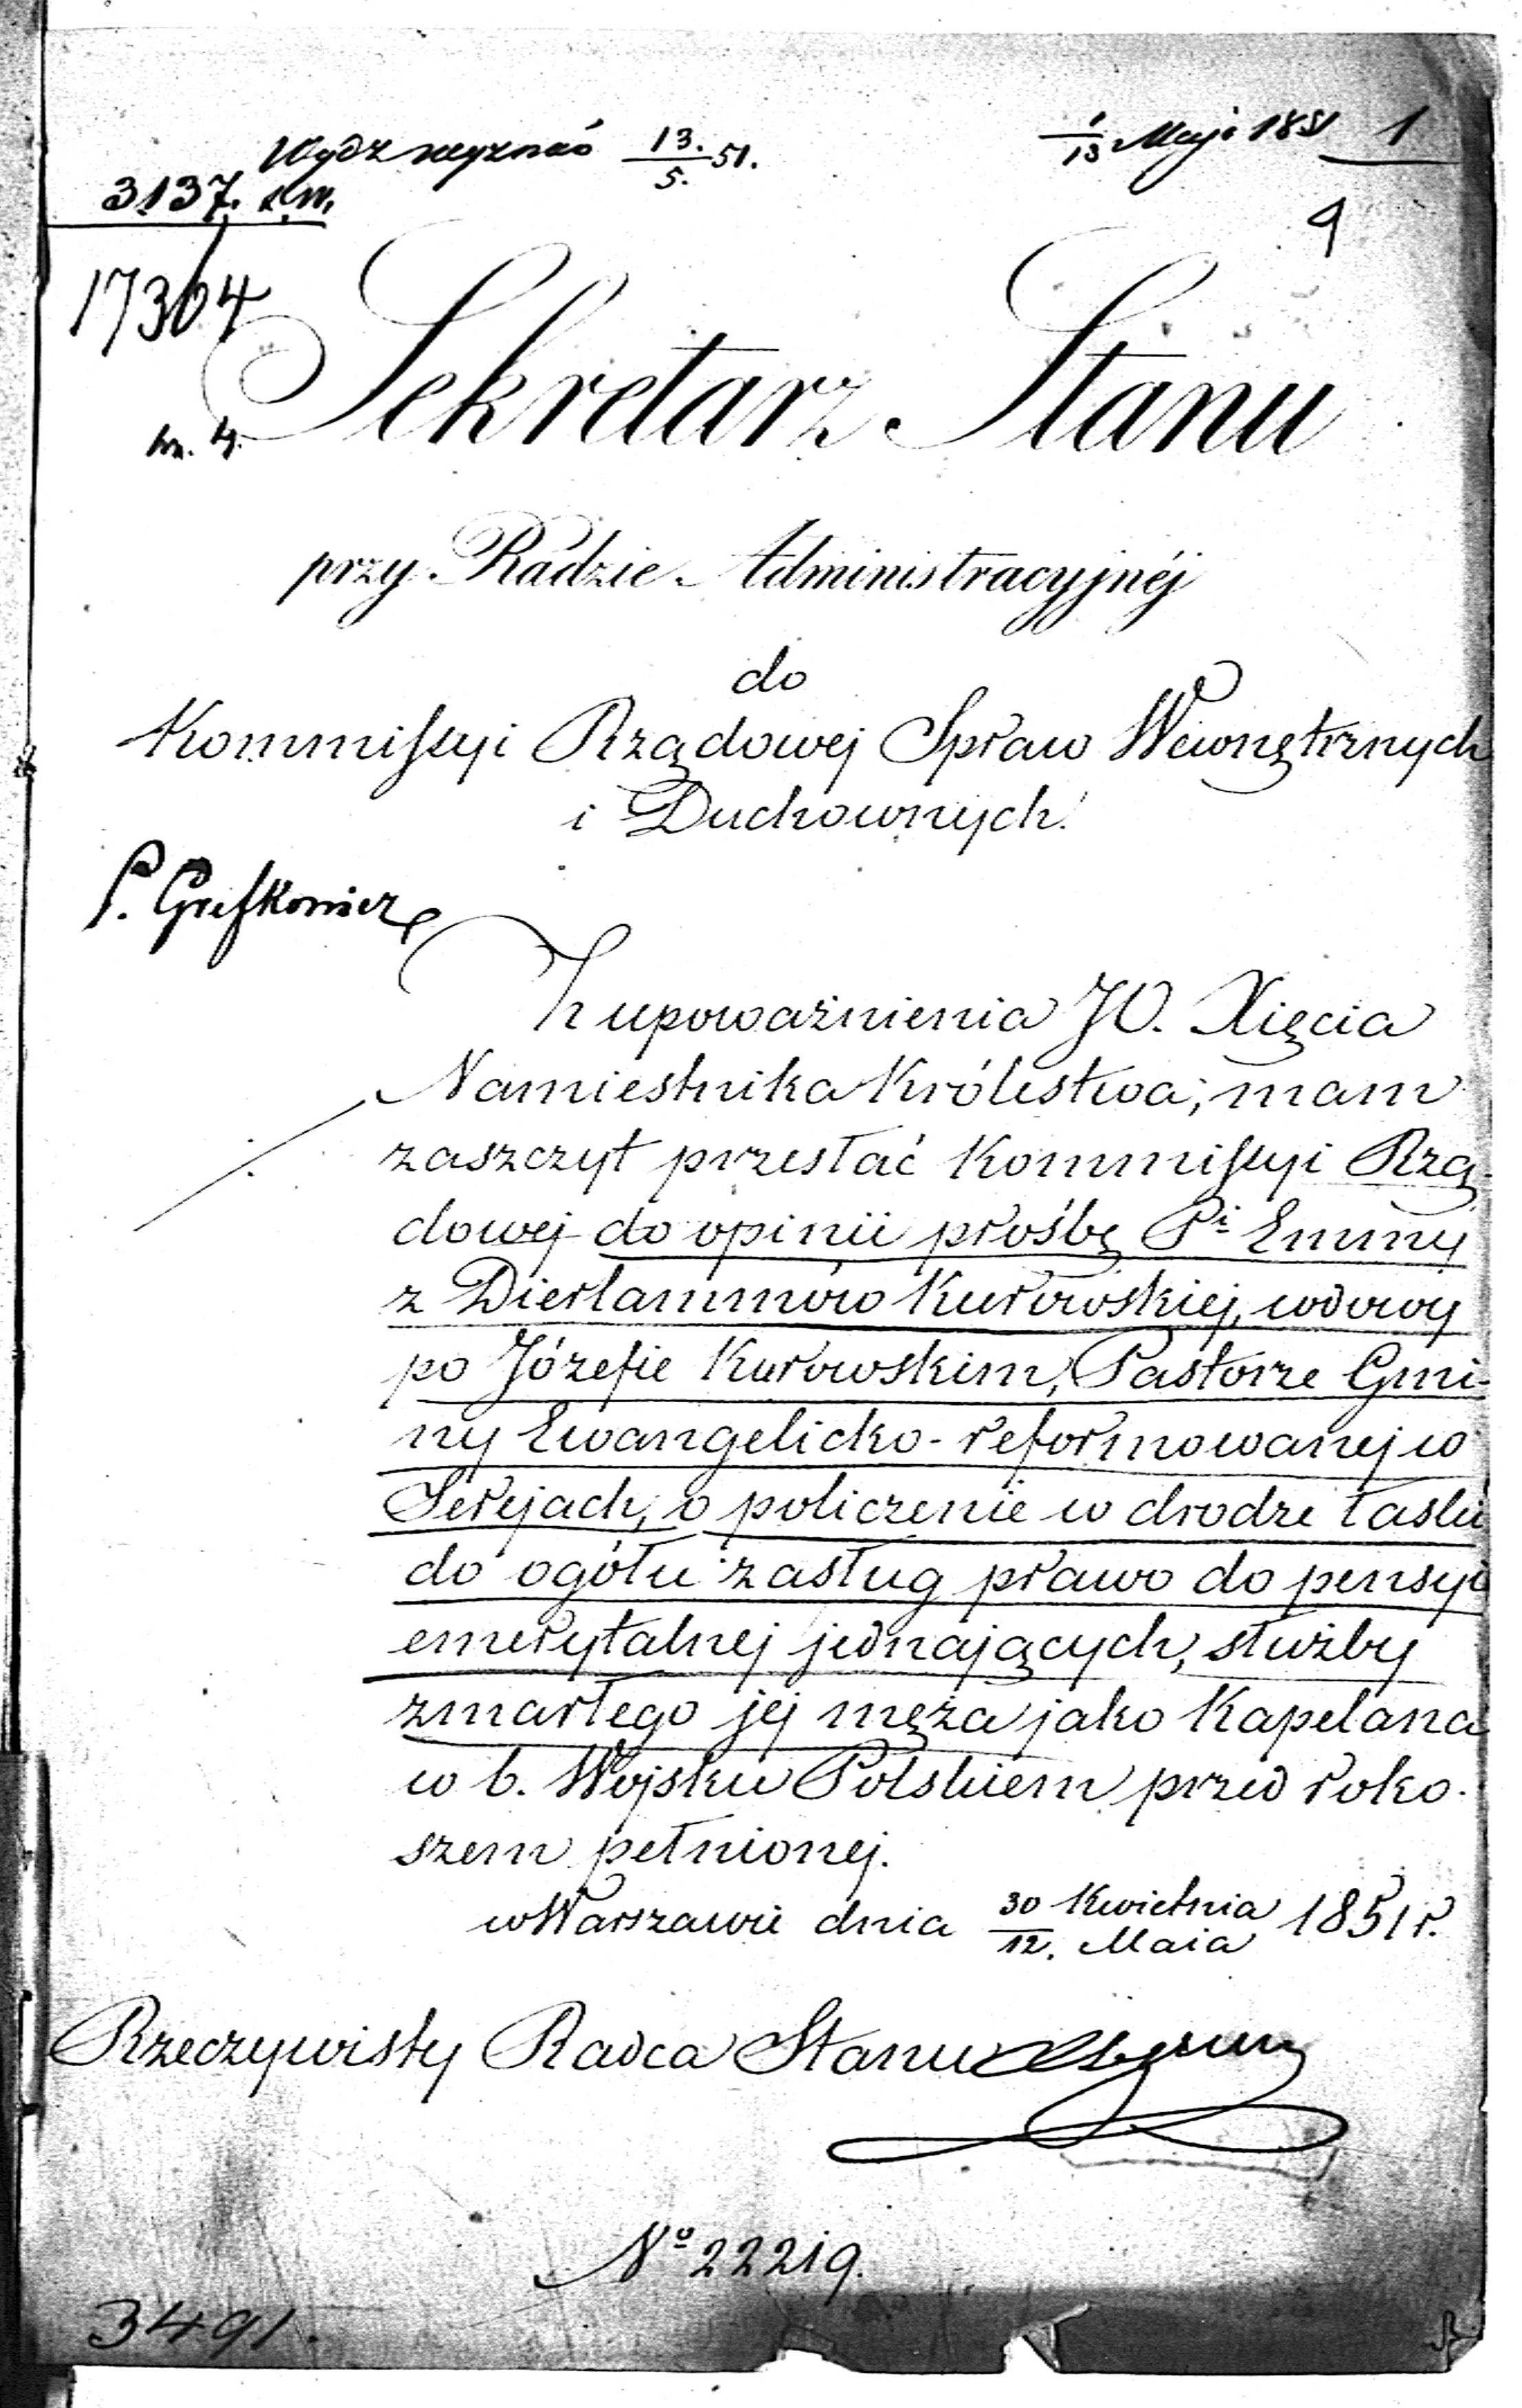 Wydz wyznań 13./5. 51.
1/13 Maja 1851 1
3137.
9
17364
Sekretarz Stanu
przy Radzie Administracyjnéj
do
Kommissyi Rządowej Spraw Wewnętrznych
i Duchownych.
Z upoważnienia JO. Xięcia
Namiestnika Królestwa, mam
zaszczyt przesłać Kommissyi Rzą-
dowej do opinii prośbę Pi Emmy
z Dierlammów Kurowskiej, wdowy
po Józefie Kurowskim, Pastorze Gmi-
ny Ewangelicko-reformowanej w
Serejach, o policzenie w drodze łaski
do ogółu zasług prawo do pensyi
emerytalnej jednających, służby
zmarłego jej męża jako Kapelana
w b. Wojsku Polskiem przed roko-
szem pełnionej.
w Warszawie dnia 30 Kwietnia/12. Maia 1851 r.
Rzeczywisty Radca Stanu
No 22219.
3491.